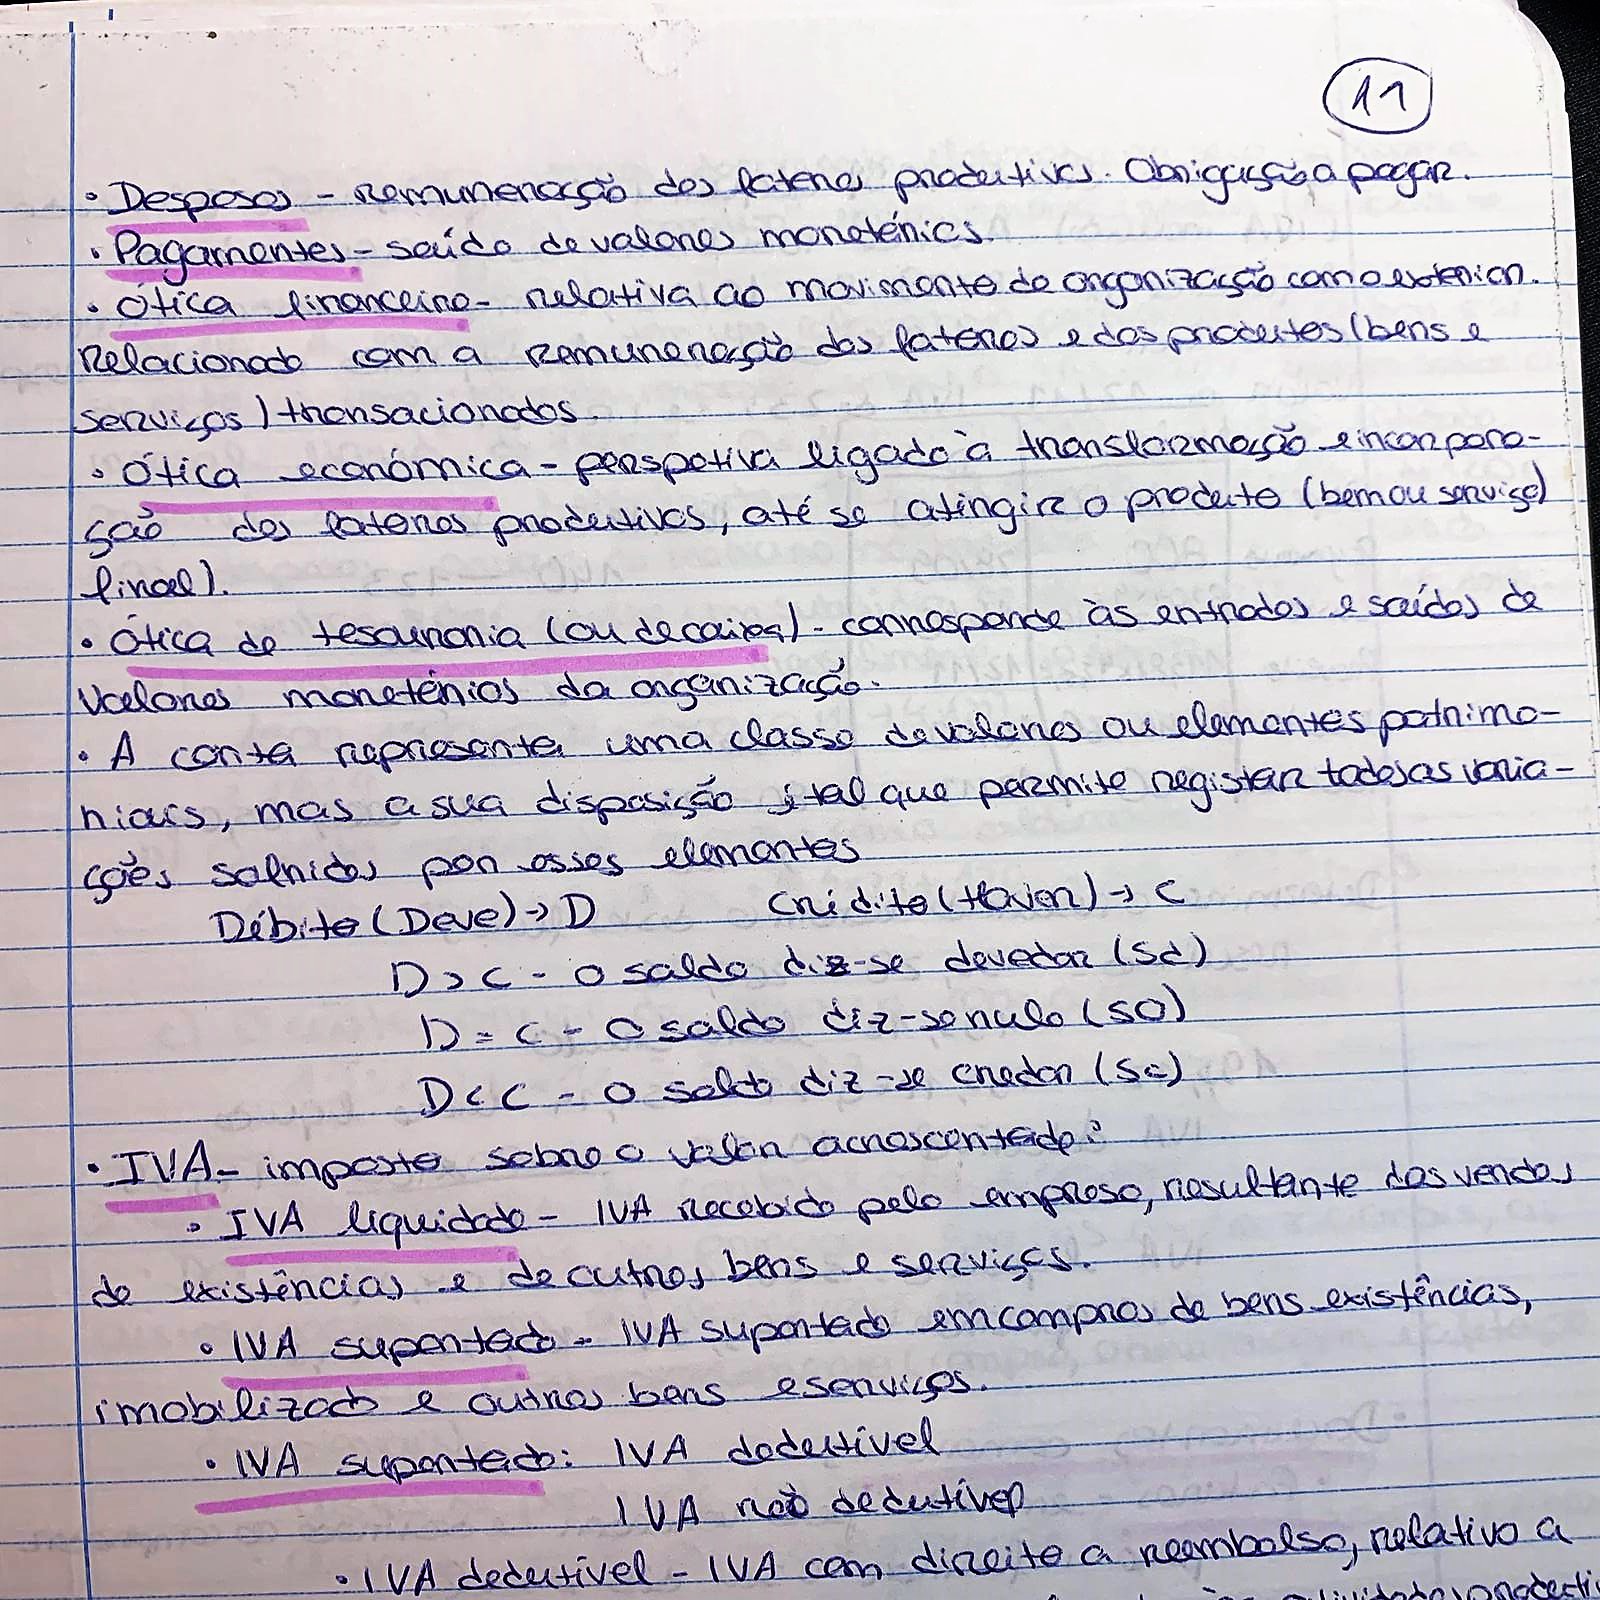 11
• Despesas - remuneração dos fatores produtivos. Obrigação a pagar.
• Pagamentos - saída de valores monetários.
• Ótica financeira - relativa ao movimento da organização com o exterior.
Relacionado com a remuneração dos fatores e dos produtos (bens e
serviços) transacionados.
• Ótica económica - perspetiva ligada à transformação e incorpora-
ção dos fatores produtivos, até se atingir o produto (bem ou serviço)
final).
• Ótica de tesouraria (ou de caixa) - corresponde às entradas e saídas de
valores monetários da organização.
• A conta representa uma classe de valores ou elementos patrimo-
niais, mas a sua disposição é tal que permite registar todas as varia-
ções sofridas por esses elementos
Débito (Deve) → D Crédito (Haver) → C
D > C - O saldo diz-se devedor (Sd)
D = C - O saldo diz-se nulo (S0)
D < C - O saldo diz-se credor (Sc)
• IVA - imposto sobre o valor acrescentado:
• IVA liquidado - IVA recebido pela empresa, resultante das vendas
de existências e de outros bens e serviços.
• IVA suportado - IVA suportado em compras de bens existências,
imobilizado e outros bens e serviços.
• IVA suportado: IVA dedutível
IVA não dedutível
• IVA dedutível - IVA com direito a reembolso, relativo a